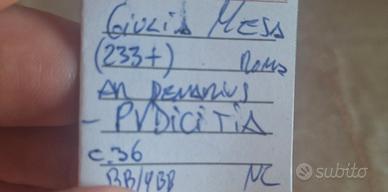 GIULIA MESA
(233+) ROMA
AR DENARIUS
- PVDICITIA
C.36
BB/qBB NC
subito